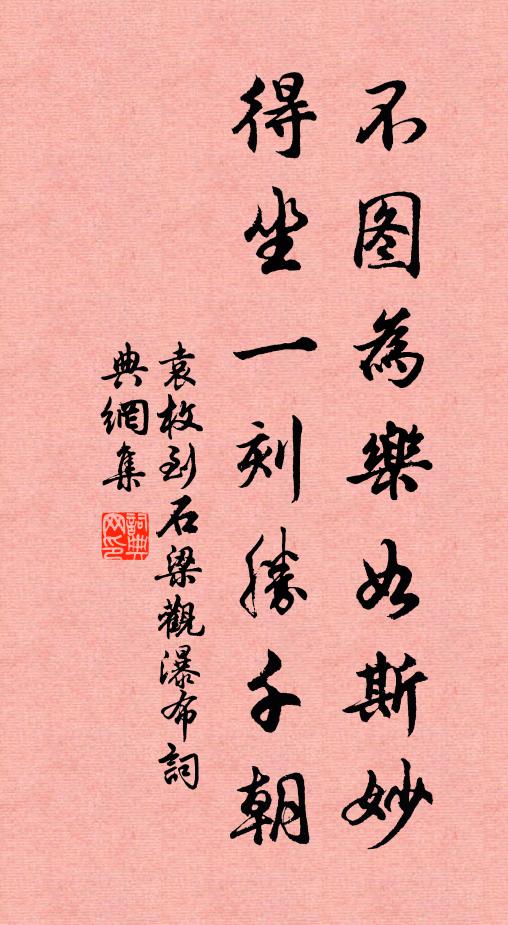 不图為樂如斯妙
得坐一刻勝千朝
袁枚到石梁觀瀑布詞
典網集
詞典
网印